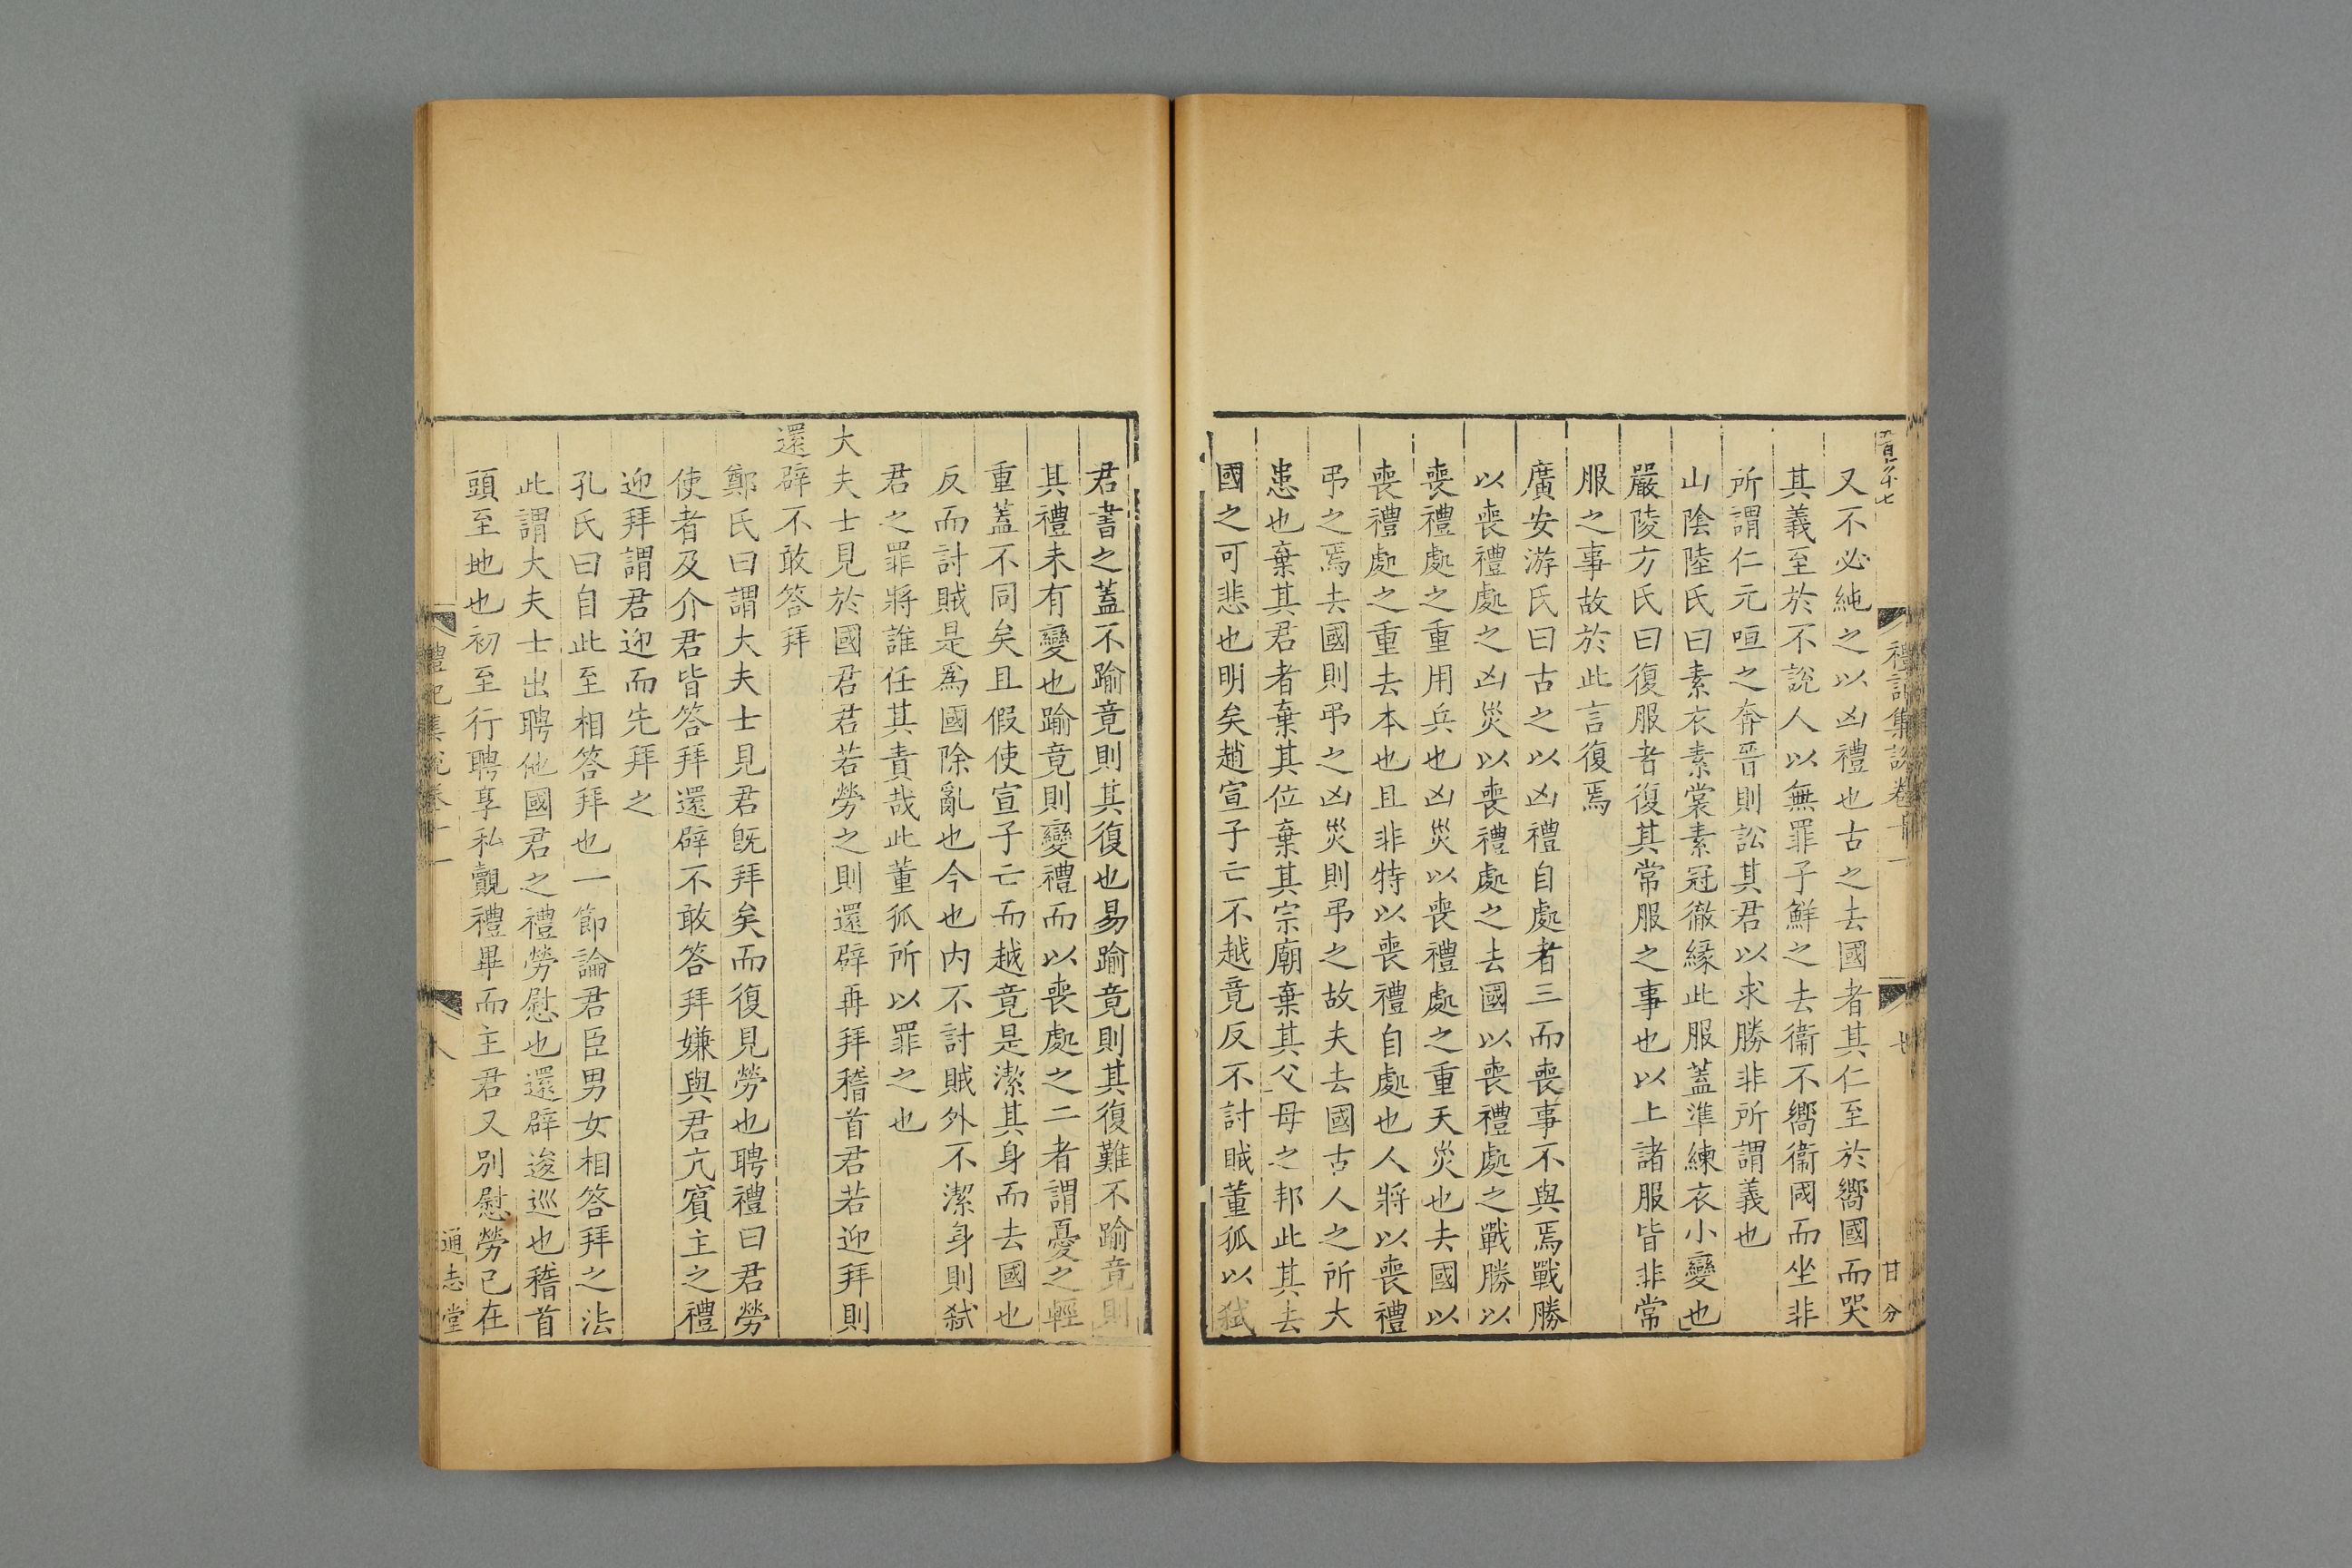 禮記集說卷十一
七
甘分
又不必純之以凶禮也古之去國者其仁至於嚮國而哭
其義至於不說人以無罪子鮮之去衞不嚮衞國而坐非
所謂仁元咺之奔晉則訟其君以求勝非所謂義也
山陰陸氏曰素衣素裳素冠徹緣此服蓋準練衣小變也
嚴陵方氏曰復服者復其常服之事也以上諸服皆非常
服之事故於此言復焉
廣安游氏曰古之以凶禮自處者三而喪事不與焉戰勝
以喪禮處之凶災以喪禮處之去國以喪禮處之戰勝以
喪禮處之重用兵也凶災以喪禮處之重天災也夫國以
喪禮處之重去本也且非特以喪禮自處也人將以喪禮
弔之焉去國則弔之凶災則弔之故夫去國古人之所大
患也棄其君者棄其位棄其宗廟棄其父母之邦此其去
國之可悲也明矣趙宣子亡不越竟反不討賊董狐以弑
君書之蓋不踰竟則其復也易踰竟則其復難不踰竟則
其禮未有變也踰竟則變禮而以喪處之二者謂憂之輕
重蓋不同矣且假使宣子亡而越竟是潔其身而去國也
反而討賊是爲國除亂也今也内不討賊外不潔身則弑
君之罪將誰任其責哉此董狐所以罪之也
大夫士見於國君君若勞之則還辟再拜稽首君若迎拜則
還辟不敢答拜
鄭氏曰謂大夫士見君旣拜矣而復見勞也聘禮曰君勞
使者及介君皆答拜還辟不敢答拜嫌與君亢賓主之禮
迎拜謂君迎而先拜之
孔氏曰自此至相答拜也一節論君臣男女相答拜之法
此謂大夫士出聘他國君之禮勞慰也還辟逡巡也稽首
頭至地也初至行聘享私覿禮畢而主君又別慰勞己在
禮記集說卷十一
八
通志堂